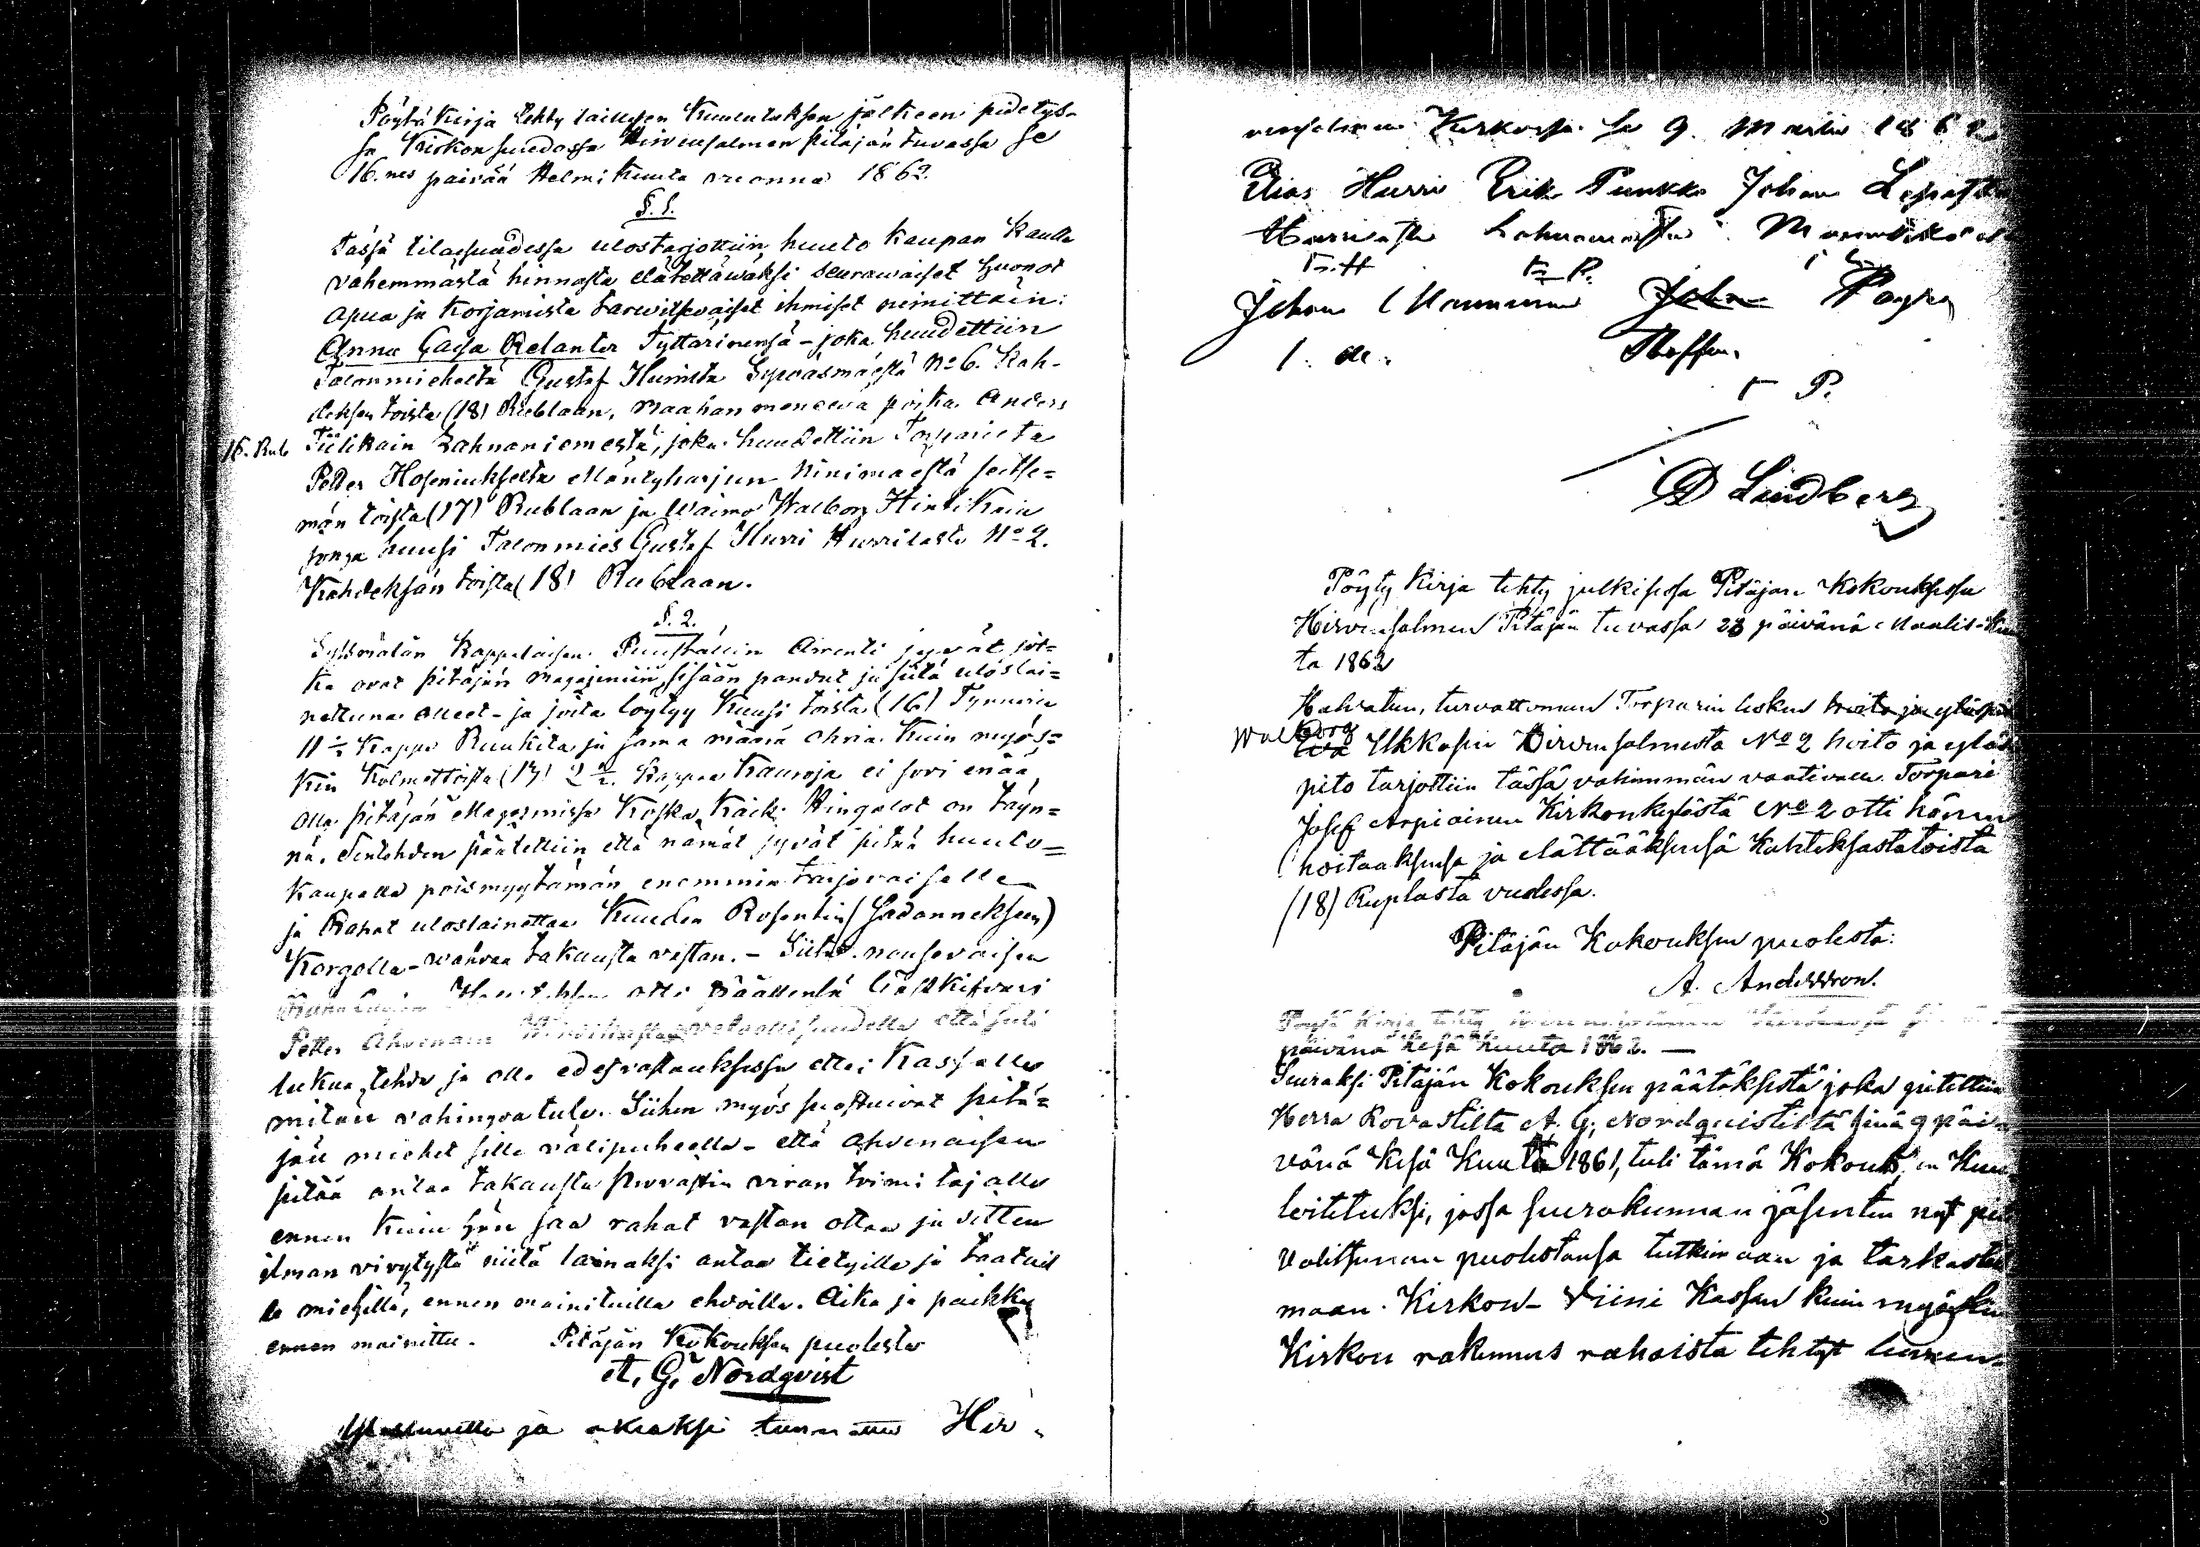 Pöytä Kirja tehty laillisen Kuulutuksen jälkeen pidetys-
sä Kirkon kuudossa Hirvensalmen Pitäjän tuvassa se
16.nes päivää Helmi Kuuta vuonna 1862.
§. 1.
Tässä tilaisuudessa ulostarjottiin huuto kaupan kautta
vähemmästä hinnasta elätettäwäksi seurawaiset huonot
apua ja korjamista tarwitsevaiset ihmiset nimittäin:
Anna Caisa Relander Tyttärinensä - joka huudettiin
Talonmieheltä Gustaf Hurrilta Syväsmäestä No 6. Kah-
deksan toista (18) Rublaan, vaahan menewä poika Anders
16. Rub Tiilikain Lahnaniemestä, joka huudettiin Torparilta
Petter Hoseniukselta Mäntyharjun Niinimäestä seitse=
män toista (17) Rublaan ja Waimo Walborg Hintikain
jonga huusi Talonmies Gustaf Hurri Hurrilasta No 2.
Kahdeksan toista (18) Rublaan.
§. 2.
Kappelaisen Puustallin Arrenti jyvät jot=
ka ovat pitäjän magasiniin sisään pandut ja siitä uloslai=
nattuna olleet - ja joita löytyy Kuusi toista (16) Tynnöriä
11 ½ Kappa Ruukita ja sama määrä ohria kuin myös=
kin Kolmettoista (13) 2 ½ Kappaa Kauroja ei sovi enää
olla pitäjän Magasinissa koska kaikki Hingalot on täyn=
nä. Sentähden päätettiin että nämät jyvät pitää huuto=
kaupalla poismyytämän enemmin tarjovaiselle
ja Rahat uloslainattaa Kuuden Rosentin (Sadanneksen)
Korgolla - wahvaa takausta vastan. - Siitä nousevaisen
otti päällensä Lästkifvari
Petter Ahvenain että siitä
lukua tehdä ja olla edesvastauksessa ettei Kassalle
mitän vahingoa tule. Siihen myös suostuivat pitä=
jän miehet sillä välipuheella - että Ahvenaisen
pitää antaa takausta viran toimittajalle
ennen kuin hän saa rahat vastan ottaa ja sitten
ilman vivytystä niitä lainaksi antaa tietyille ja taatuil
le miehille, ennen mainituilla ehdoilla. Aika ja paikka
ennen mainittu. Pitäjän Kokouksen puolesta
A. G. Nordqvist
ja oikiaksi tunnettu Hir-
vensalmen Kirkossa se 9. Martii 1862
Elias Hurri Erik Punkka Johan
Hurrilasta Lahnamäestä
E. H E. P.
Johan Manninen John Pöyry
Steffen
P.
D Lindberg
Pöyty Kirja tehty julkisessa Pitäjän Kokouksessa
Hirvensalmen Pitäjän tuvassa 23 päivänä Maaliskuu
ta 1862
Halvatun, turvattoman Torparin lesken hoito ja ylöspito
Walborg Ukkosen Hirvensalmesta No 2 hoito ja ylös
pito tarjottiin tässä vähimmän vaativalle. Torpari
Josef Arpiainen Kirkonkylästä No 2 otti hänen
hoitaaksensa ja elättääksensä Kahteksastatoista
(18) Ruplasta vuodessa.
Pitäjän Kokouksen puolesta:
A. Andersson.
Pöytä Kirja tehty Hirvensalmen Kirkossa
päivänä Kesä Kuuta 1862. —
Seuraksi Pitäjän Kokouksen päätöksestä joka pitettiin
Herra Rovastilta A. G. Nordquistilta sinä 9 päi-
vänä Kesä Kuuta 1861, tuli tämä Kokous, en Kuu
loitetuksi, jossa seurakunnan jäsenten nyt piti
valitseman puolestansa tutkimaan ja tarkastele
maan Kirkon- Viini Kassan kuin myöskin
Kirkon rakennus rahoista tehtyt